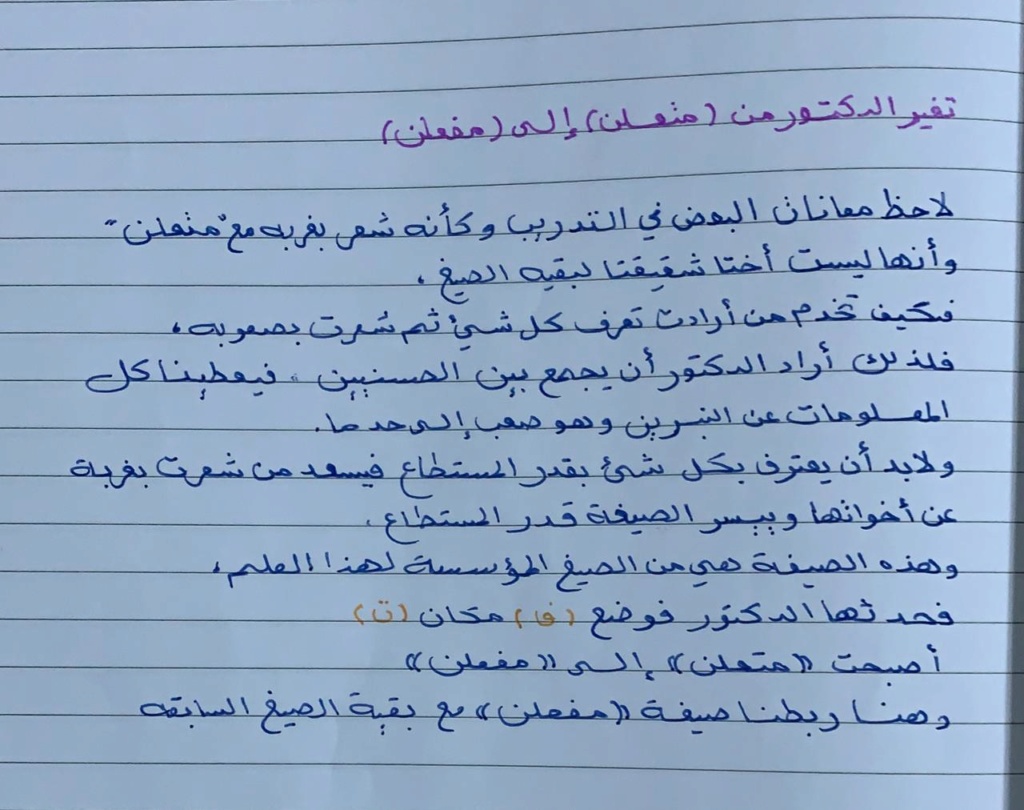 تغير الدكتور من (متعلن) إلى (مفعلن)
لاحظ معاناة البعض في التدريب وكأنه شعر بغربه مع "متعلن"
وأنها ليست أختا شقيقتا لبقيه الصيغ ،
فكيف تخدم من أرادت تعرف كل شئ ثم شعرت بصعوبه ،
فلذلك أراد الدكتور أن يجمع بين الحسنيين ، فيعطينا كل
المعلومات عن النبرين وهو صعب إلى حد ما .
ولابد أن يعترف بكل شئ بقدر المستطاع فيسعد من شعرت بغربة
عن أخواتها وييسر الصيغة قدر المستطاع .
وهذه الصيغة هي من الصيغ المؤسسة لهذا العلم ،
فحدثها الدكتور فوضع (ف) مكان (ت)
أصبحت «متعلن» إلى «مفعلن»
وهنا ربطنا صيغة «مفعلن» مع بقية الصيغ السابقه